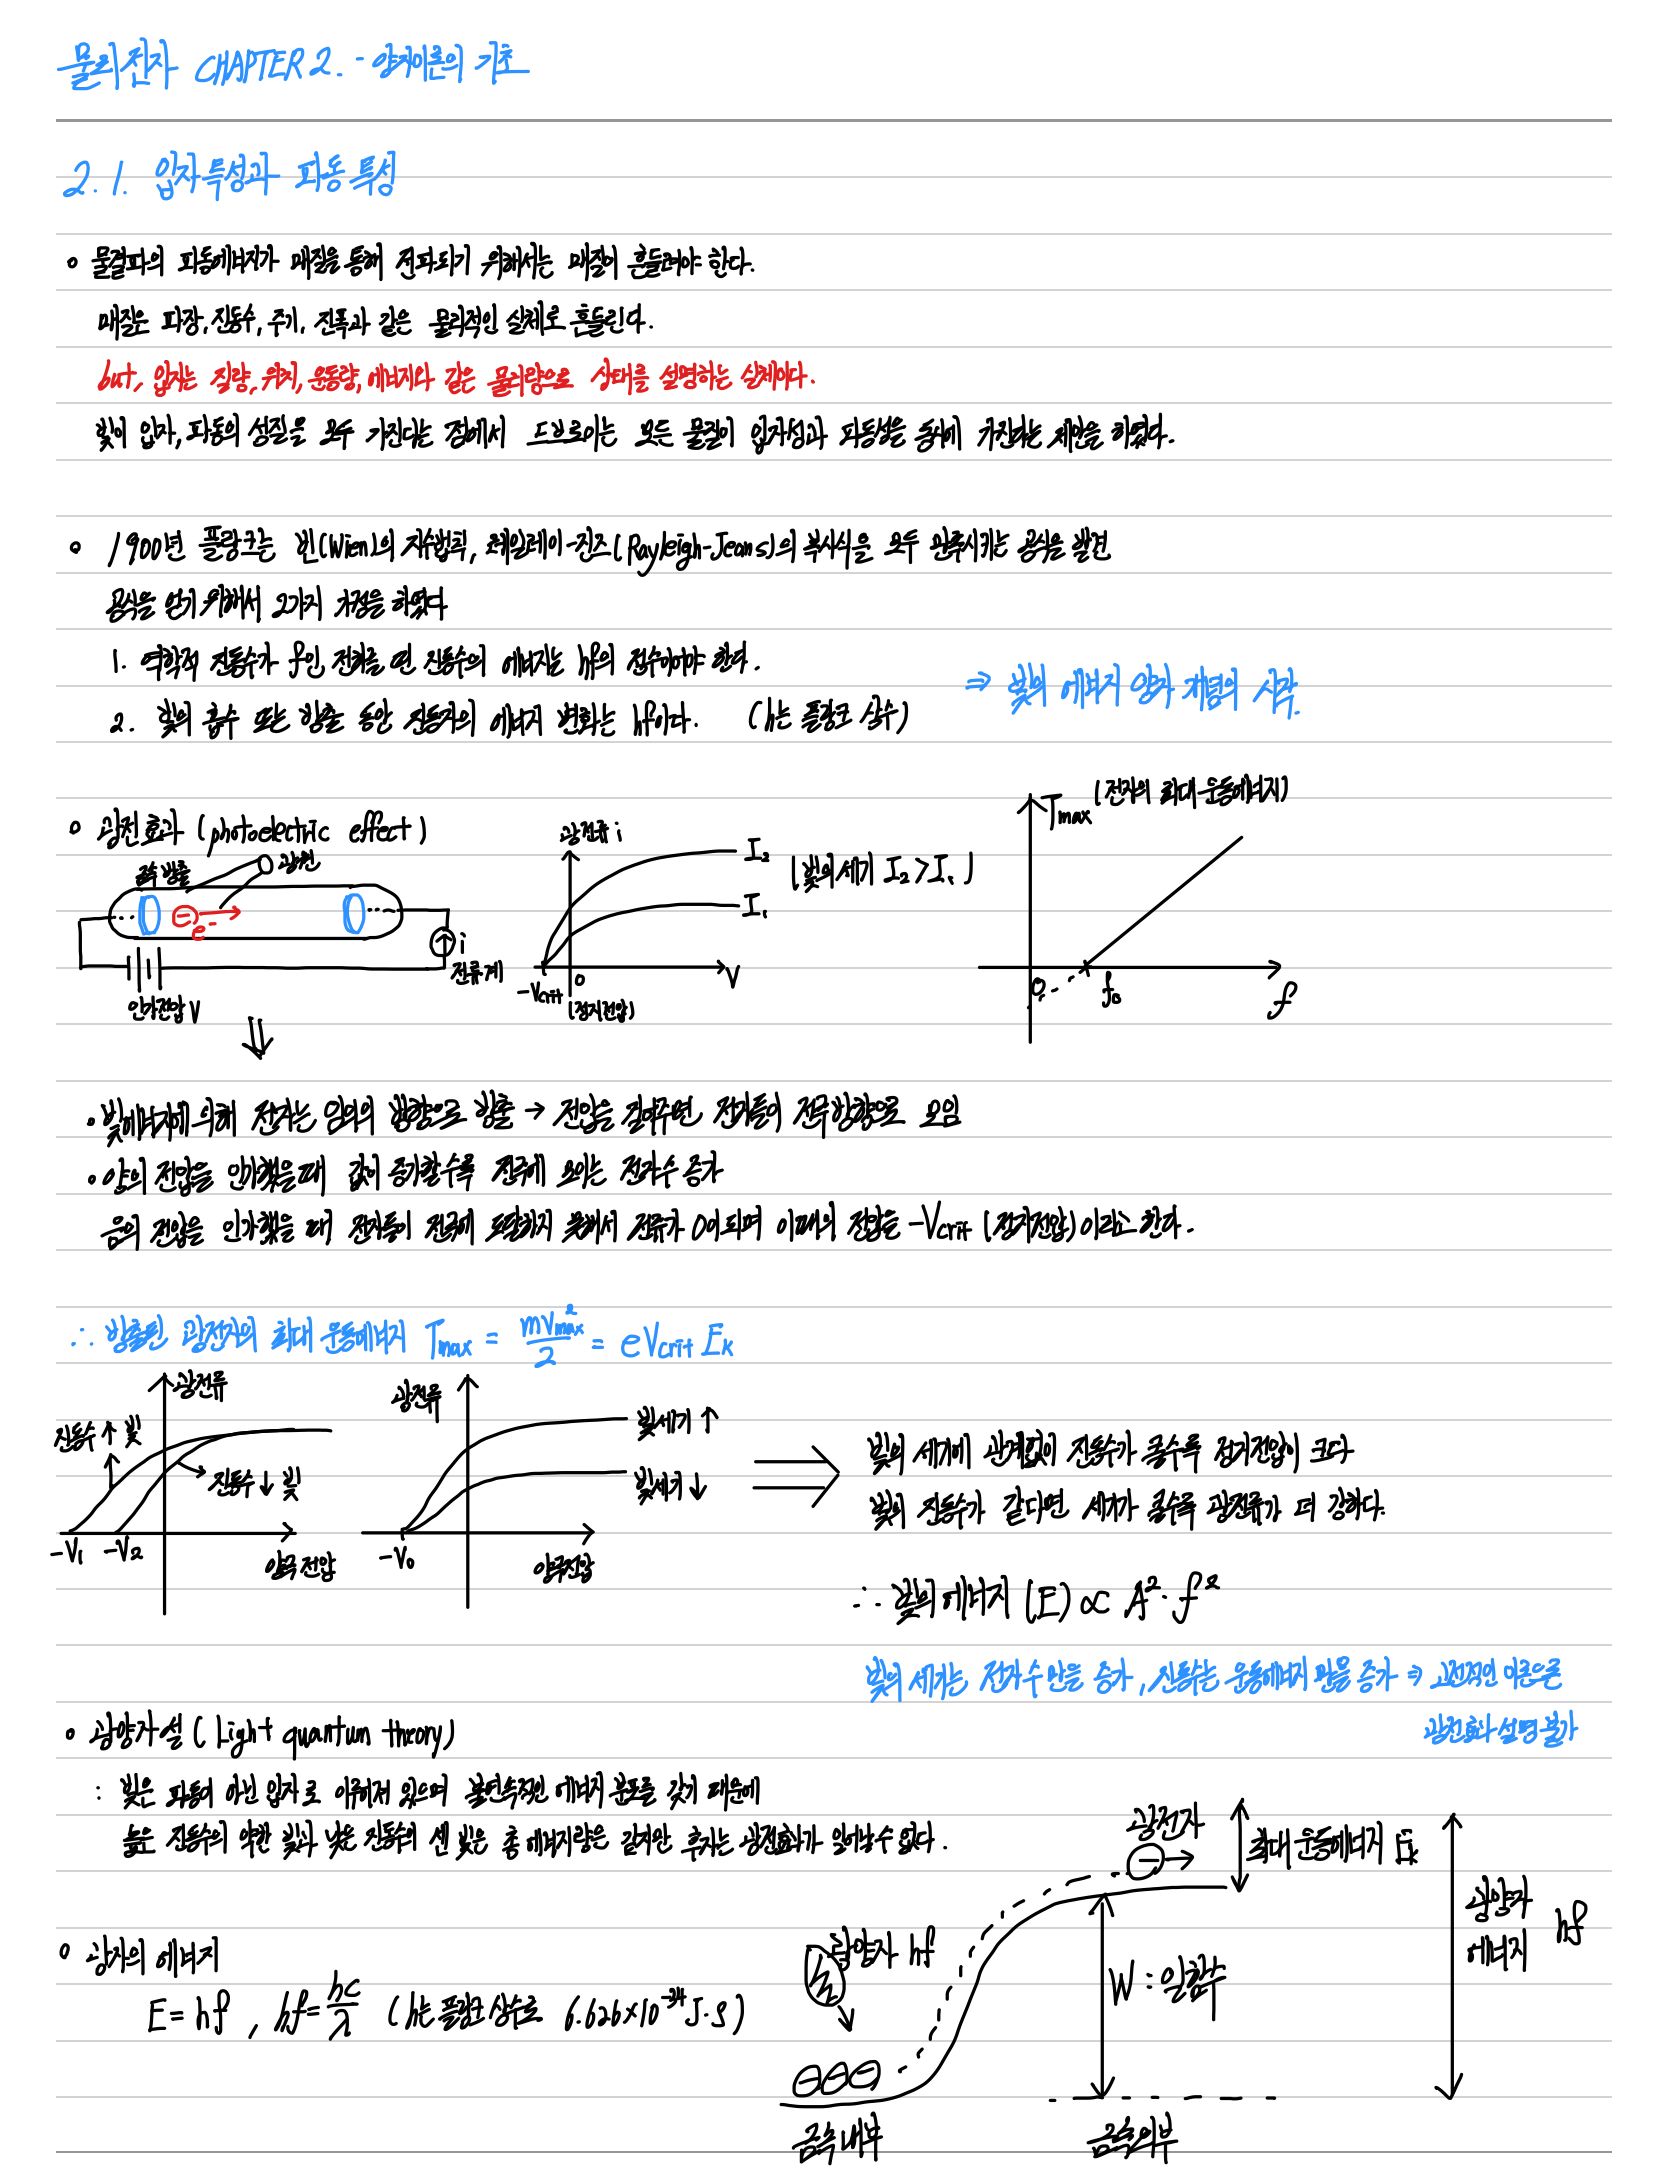 물리전자 CHAPTER 2. - 양자이론의 기초
2.1. 입자특성과 파동특성
물결파의 파동에너지가 매질을 통해 전파되기 위해서는 매질이 흔들려야 한다.
매질은 파장, 진동수, 주기, 진폭과 같은 물리적인 실체로 흔들린다.
but, 입자는 질량, 위치, 운동량, 에너지와 같은 물리량으로 상태를 설명하는 실체이다.
빛이 입자, 파동의 성질을 모두 가진다는 점에서 드브로이는 모든 물질이 입자성과 파동성을 동시에 가진다는 제안을 하였다.
1900년 플랑크는 빈(Wien)의 지수법칙, 레일레이-진즈(Rayleigh-Jeans)의 복사식을 모두 만족시키는 공식을 발견
공식을 얻기 위해서 2가지 가정을 하였다
1. 역학적 진동수가 f인 진자를 띤 진동수의 에너지는 hf의 정수이어야 한다.
2. 빛의 흡수 또는 방출 동안 진동자의 에너지 변화는 hf이다. (h는 플랑크 상수)
⇒ 빛의 에너지 양자 개념의 시작.
광전효과 (photoelectric effect)
금속 방출
광원
e-
i
전류계
인가전압 V
광전류 i
I₂
I₁
(빛의 세기 I₂ > I₁)
-Vcrit
0
V
(정지전압)
Tmax (전자의 최대 운동에너지)
0
f₀
f
빛에너지에 의해 전자는 임의의 방향으로 방출 → 전압을 걸어주면 전자들이 전극방향으로 모임
양의 전압을 인가했을때 값이 증가할수록 전극에 모이는 전자수 증가
음의 전압을 인가했을 때 전자들이 전극에 도달하지 못해서 전류가 0이되며 이때의 전압을 -Vcrit (정지전압)이라고 한다.
∴ 방출된 광전자의 최대 운동에너지 Tmax = mVmax²/2 = eVcrit Ek
광전류
진동수 ↑ 빛
진동수 ↓ 빛
-V₁
-V₂
양극 전압
광전류
빛세기 ↑
빛세기 ↓
-V₀
양극전압
빛의 세기에 관계없이 진동수가 클수록 정지전압이 크다
빛의 진동수가 같다면 세기가 클수록 광전류가 더 강하다.
∴ 빛의 에너지 (E) ∝ A²·f²
빛의 세기는 전자수 만을 증가, 진동수는 운동에너지 만을 증가 ⇒ 고전적인 이론으론
광전효과 설명 불가
광양자설 (Light quantum theory)
: 빛은 파동이 아닌 입자로 이루어져 있으며 불연속적인 에너지 분포를 갖기 때문에
높은 진동수의 약한 빛과 낮은 진동수의 센 빛은 총 에너지량은 같지만 후자는 광전효과가 일어날 수 없다.
광전자
최대 운동에너지 Ek
광양자
에너지
hf
광양자 hf
W : 일함수
금속내부
금속외부
광자의 에너지
E = hf , hf = hc/λ (h는 플랑크 상수로 6.626×10⁻³⁴ J·S)